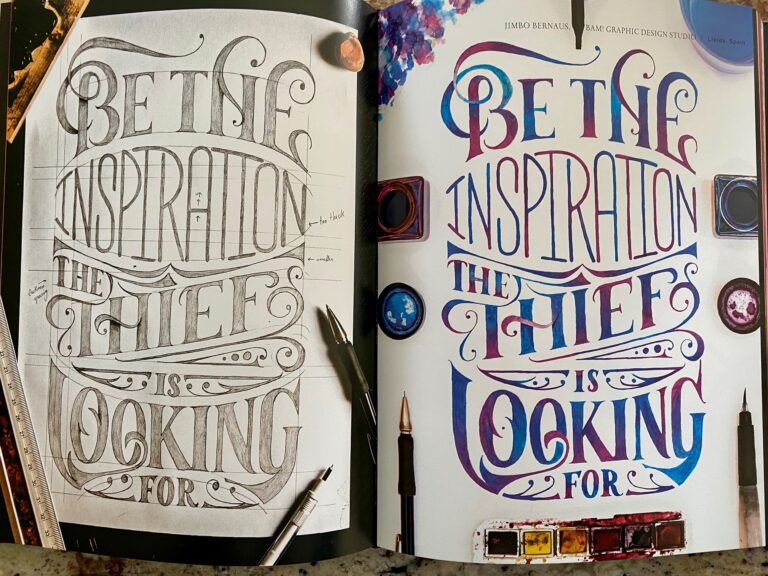 BE THE
INSPIRATION
THE
THIEF
IS
LOOKING
FOR
too thick
smaller
JIMBO BERNAUS, BAM! GRAPHIC DESIGN STUDIO
Lleida, Spain
BE THE
INSPIRATION
THE
THIEF
IS
LOOKING
FOR